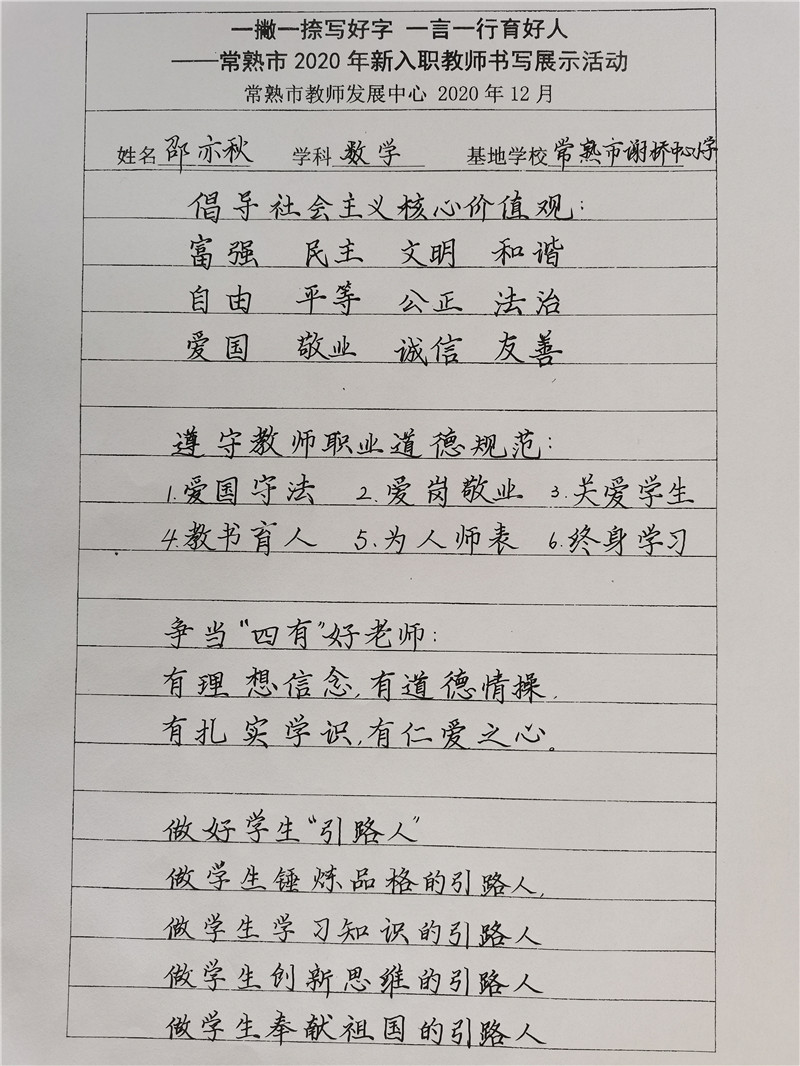 一撇一捺写好字 一言一行育好人
——常熟市 2020 年新入职教师书写展示活动
常熟市教师发展中心 2020 年 12 月
姓名 邵亦秋 学科 数学 基地学校 常熟市谢桥中心小学
倡导社会主义核心价值观:
富强 民主 文明 和谐
自由 平等 公正 法治
爱国 敬业 诚信 友善
遵守教师职业道德规范:
1.爱国守法 2.爱岗敬业 3.关爱学生
4.教书育人 5.为人师表 6.终身学习
争当“四有”好老师:
有理想信念,有道德情操,
有扎实学识,有仁爱之心。
做好学生“引路人”
做学生锤炼品格的引路人,
做学生学习知识的引路人
做学生创新思维的引路人
做学生奉献祖国的引路人